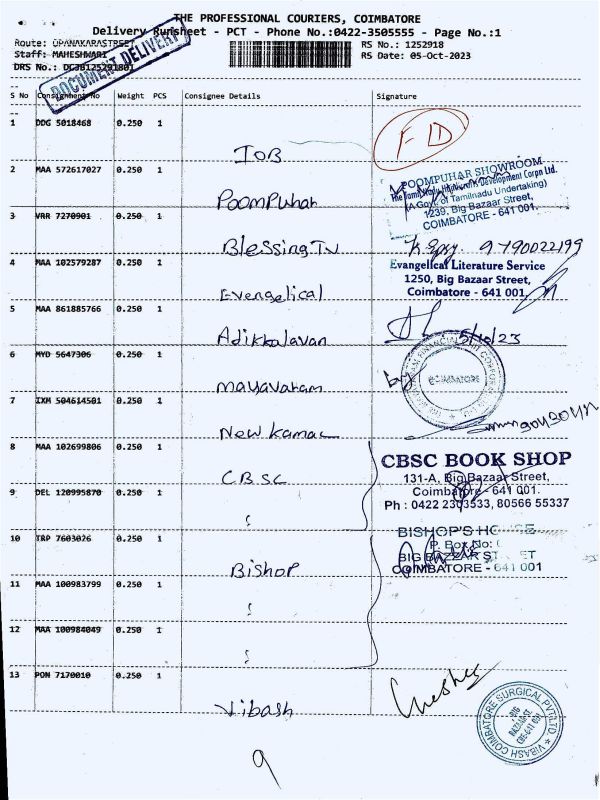 THE PROFESSIONAL COURIERS, COIMBATORE
Delivery Runsheet - PCT - Phone No.:0422-3505555 - Page No.:1
Route: OPANAKARASTREET
Staff: MAHESHWARI
DRS No.: DC38125291801
RS No.: 1252918
RS Date: 05-Oct-2023
DOCUMENT DELIVERY
S No Consignment No Weight PCS Consignee Details Signature
1 DDG 5018468 0.250 1 IOB FD
2 MAA 572617027 0.250 1 Poompuhar
POOMPUHAR SHOWROOM
(A Govt. of Tamilnadu Undertaking)
1239, Big Bazaar Street,
COIMBATORE - 641 001.
3 VRR 7270901 0.250 1 Blessing TV 9790022199
4 MAA 102579287 0.250 1 Evengelical
Evangelical Literature Service
1250, Big Bazaar Street,
Coimbatore - 641 001
5 MAA 861885766 0.250 1 Adikkalavan 5/10/23
6 MYD 5647306 0.250 1 mayavaram
COIMBATORE
7 IXM 504614501 0.250 1 New Kamal
8 MAA 102699806 0.250 1 CBSC
CBSC BOOK SHOP
131-A, Big Bazaar Street,
Coimbatore - 641 001.
Ph : 0422 2393533, 80566 55337
9 DEL 120995870 0.250 1
10 TRP 7603026 0.250 1 Bishop
BISHOP'S HOUSE
P. Box No:
BIG BAZAAR STREET
COIMBATORE - 641 001
11 MAA 100983799 0.250 1
12 MAA 100984049 0.250 1
13 PON 7170010 0.250 1 Vibash
VIBASH COIMBATORE SURGICAL PVT LTD
BIG
BAZAAR ST.
CBE-641 001
9